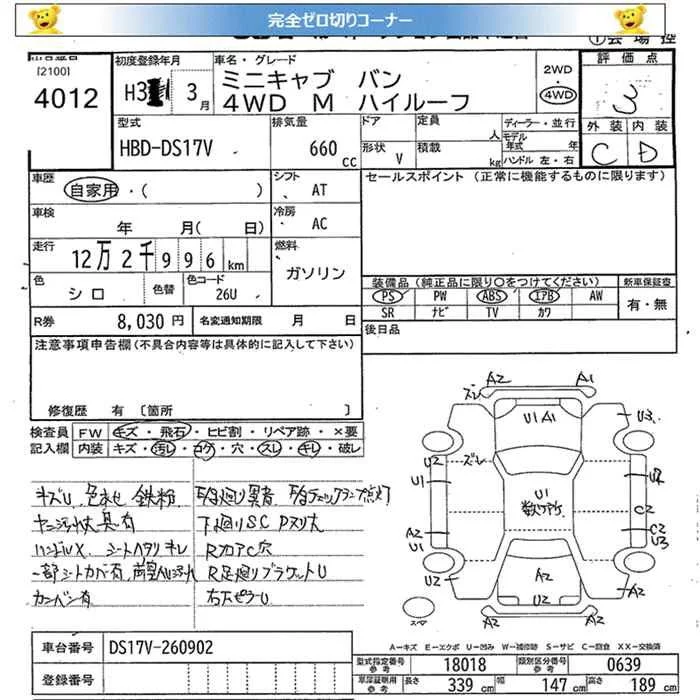 完全ゼロ切りコーナー
出品番号
[2100]
4012
初度登録年月
H31 3月
車名・グレード
ミニキャブ バン
4WD M ハイルーフ
2WD
4WD
評価点
外装 内装
C D
型式
HBD-DS17V
排気量
660 cc
ドア
形状 V
定員
人
積載
kg
ディーラー・並行
モデル
年式 年
ハンドル 左・右
車歴
自家用・( )
シフト
AT
セールスポイント (正常に機能するものに限ります)
車検
年 月( 日)
冷房
AC
走行
12万2千996km
燃料
ガソリン
色
シロ
色替
色コード
26U
装備品 (純正品に限り○をつけてください)
新車保証書
PS PW ABS エアB AW
SR ナビ TV カワ
有・無
R券 8,030円 名変通知期限 月 日
後日品
注意事項申告欄 (不具合内容等は具体的に記入して下さい)
修復歴 有 [箇所 ]
検査員 FW キズ・飛石・ヒビ割・リペア跡・×要
記入欄 内装 キズ・汚レ・コゲ・穴・スレ・キレ・破レ
キズU 色あせ 鉄粉
ヤニ汚れ大 具有
ハンドルX シートヘタリ キレ
一部シートカバー有
カンバン有
下廻りSC Pヌリ大
RフロアC穴
R足廻りブラケットU
A2 A1
ズレ
U1 A1
U3
U2 ズレ
U1
U1
C2
A2
U1
C2
U3
A2
U2
U2
A2 A2
スペア
A-キズ E-エクボ U-凹み W-補修跡 S-サビ C-腐食 XX-交換済
車台番号 DS17V-260902
登録番号
型式指定番号
参考
18018
類別区分番号
参考
0639
車庫証明用
参考
長さ 339 cm 幅 147 cm 高さ 189 cm